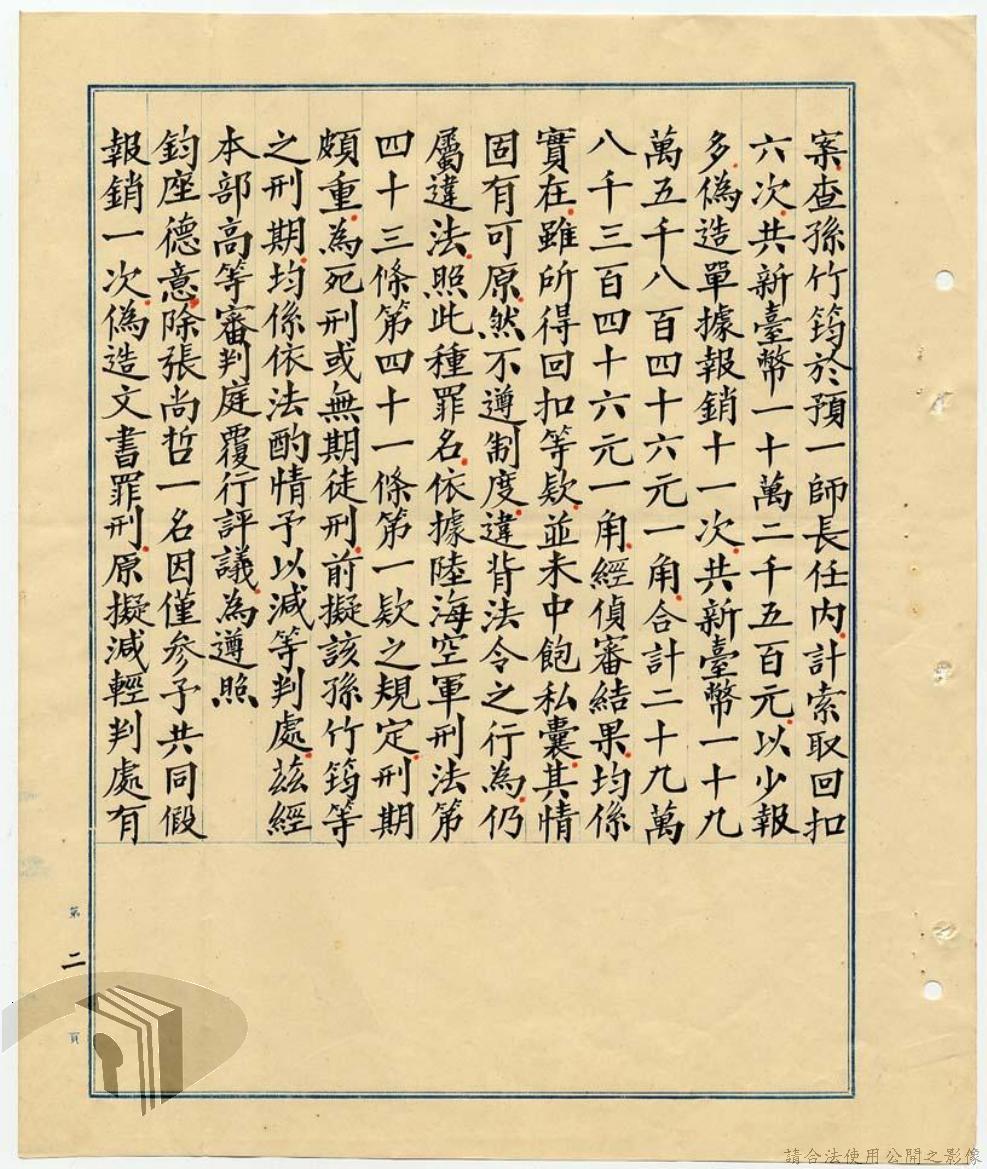 案查孫竹筠於預一師長任內計索取回扣
六次共新臺幣一十萬二千五百元以少報
多偽造單據報銷十一次共新臺幣一十九
萬五千八百四十六元一角合計二十九萬
八千三百四十六元一角經偵審結果均係
實在雖所得回扣等欵並未中飽私囊其情
固有可原然不遵制度違背法令之行為仍
屬違法照此種罪名依據陸海空軍刑法第
四十三條第四十一條第一欵之規定刑期
頗重為死刑或無期徒刑前擬該孫竹筠等
之刑期均係依法酌情予以減等判處茲經
本部高等審判庭覆行評議為遵照
鈞座德意除張尚哲一名因僅參予共同假
報銷一次偽造文書罪刑原擬減輕判處有
第二頁
請合法使用公開之影像